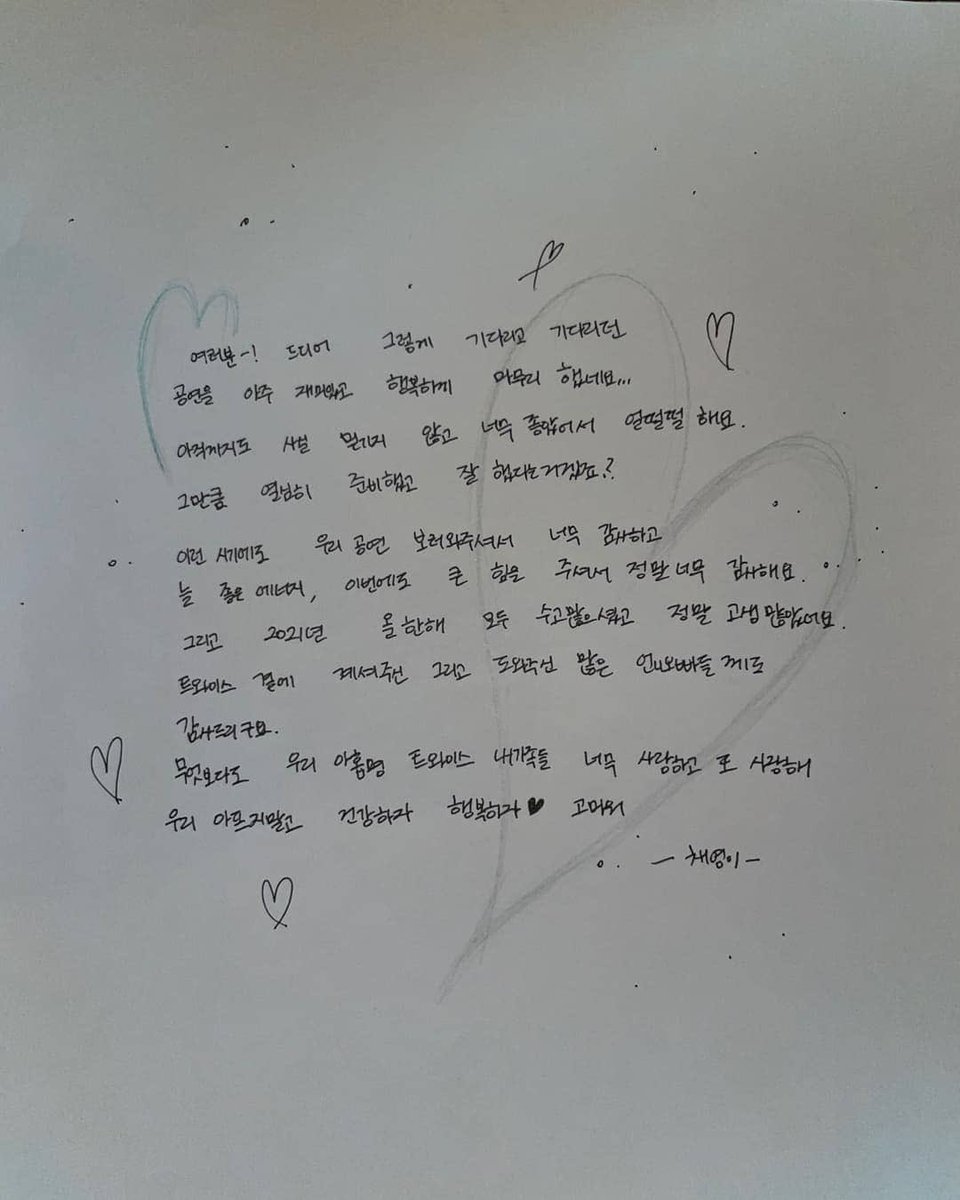 여러분-! 드디어 그렇게 기다리고 기다리던
공연을 아주 재미있고 행복하게 마무리 했네요...
아직까지도 사실 믿기지 않고 너무 좋았어서 얼떨떨 해요.
그만큼 열심히 준비했고 잘 했다는거겠죠.?
이런 시기에도 우리 공연 보러와주셔서 너무 감사하고
늘 좋은 에너지, 이번에도 큰 힘을 주셔서 정말 너무 감사해요.
그리고 2021년 올 한해 모두 수고많으셨고 정말 고생많았어요.
트와이스 곁에 계셔주신 그리고 도와주신 많은 언니오빠들께도
감사드리구요.
무엇보다도 우리 아홉명 트와이스 내가족들 너무 사랑하고 또 사랑해
우리 아프지말고 건강하자 행복하자♥ 고마워
- 채영이 -